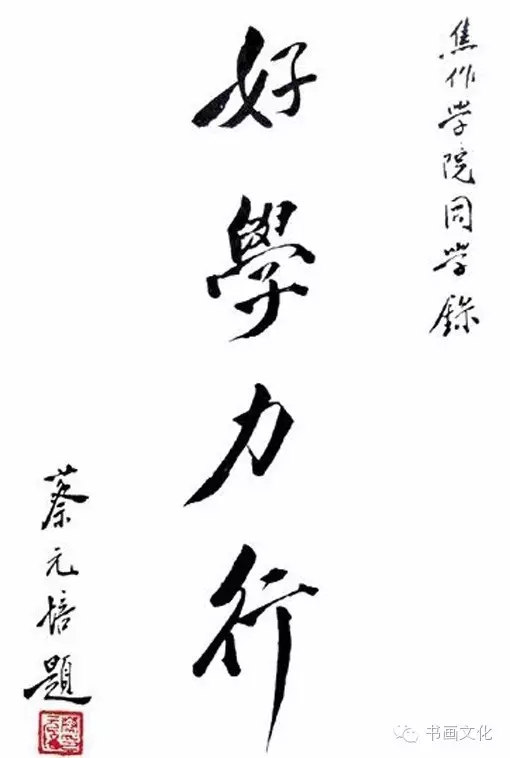 焦作学院同学錄
好學力行
蔡元培題
书画文化